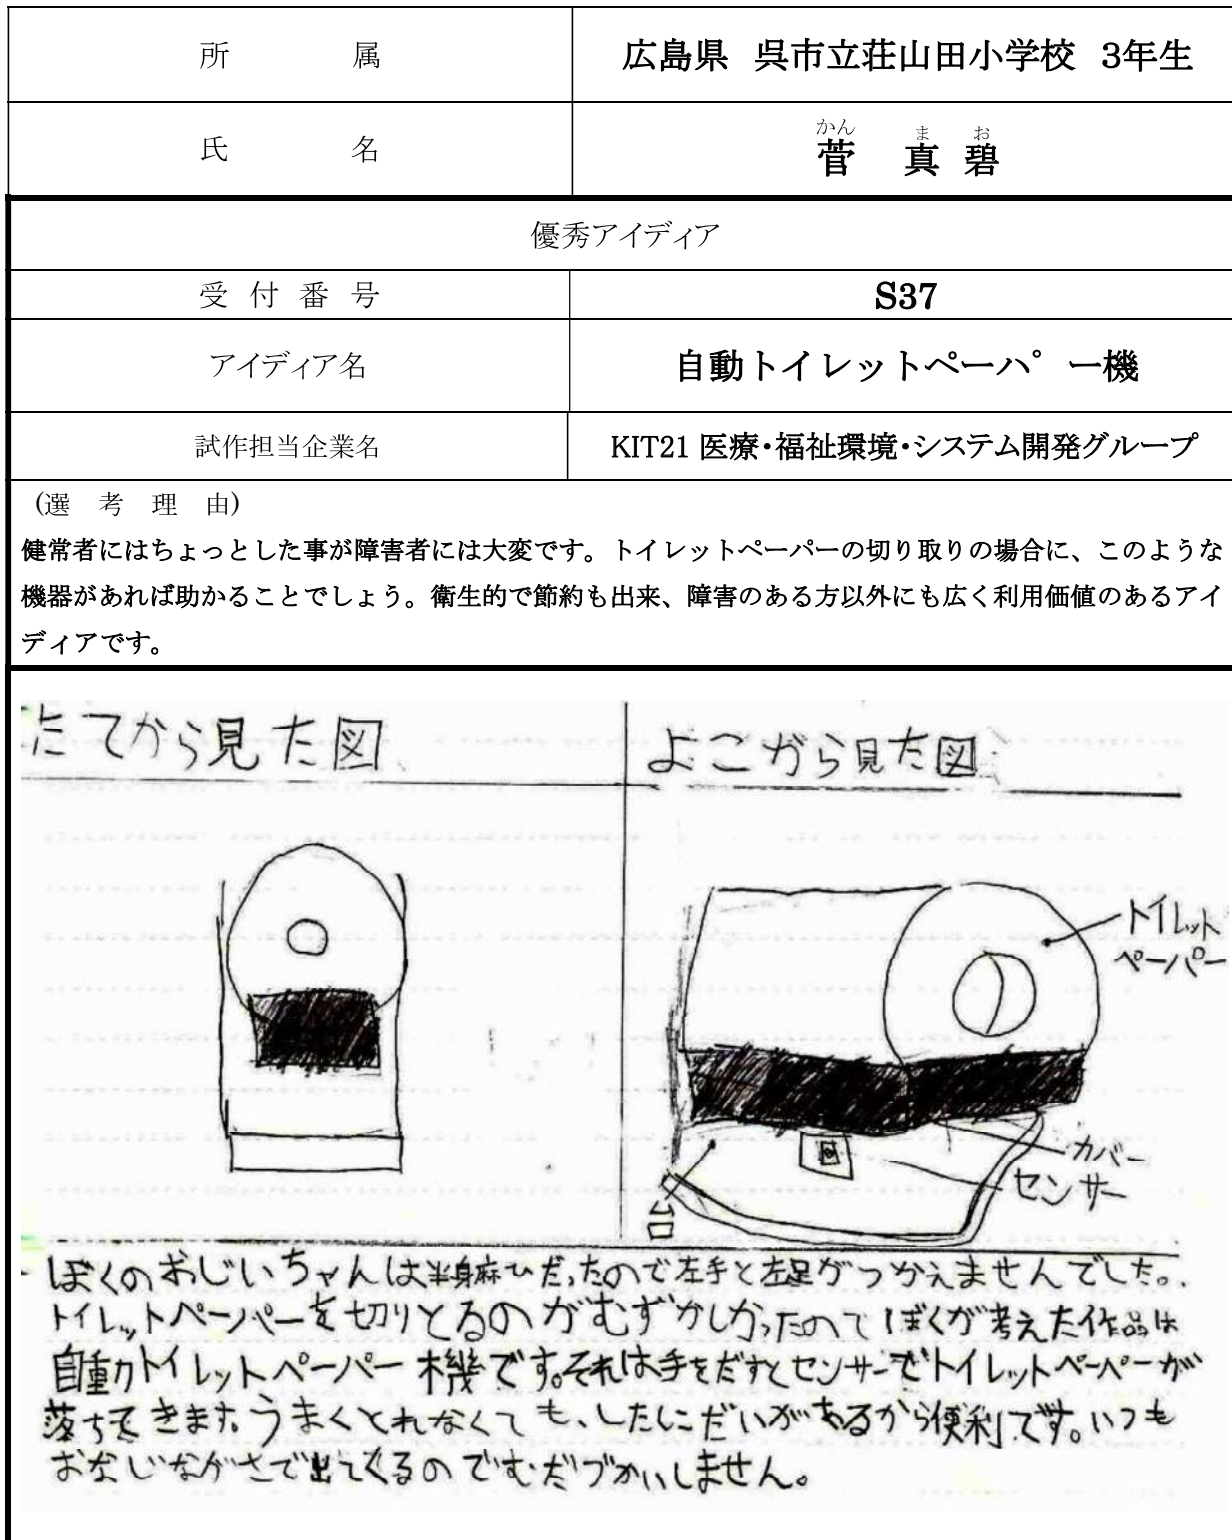 所属 広島県 呉市立荘山田小学校 3年生
かん ま お
氏名 菅 真碧
優秀アイディア
受付番号 S37
アイディア名 自動トイレットペーパー機
試作担当企業名 KIT21 医療・福祉環境・システム開発グループ
(選考理由)
健常者にはちょっとした事が障害者には大変です。トイレットペーパーの切り取りの場合に、このような
機器があれば助かることでしょう。衛生的で節約も出来、障害のある方以外にも広く利用価値のあるアイ
ディアです。
たてから見た図
よこから見た図
トイレット
ペーパー
カバー
センサー
台
ぼくのおじいちゃんは半身麻ひだったので左手と左足がつかえませんでした。
トイレットペーパーを切りとるのがむずかしかったのでぼくが考えた作品は
自動トイレットペーパー機です。それは手をだすとセンサーでトイレットペーパーが
落ちてきます。うまくとれなくても、したにだいがあるから便利です。いつも
おなじながさで出てくるのでむだづかいしません。